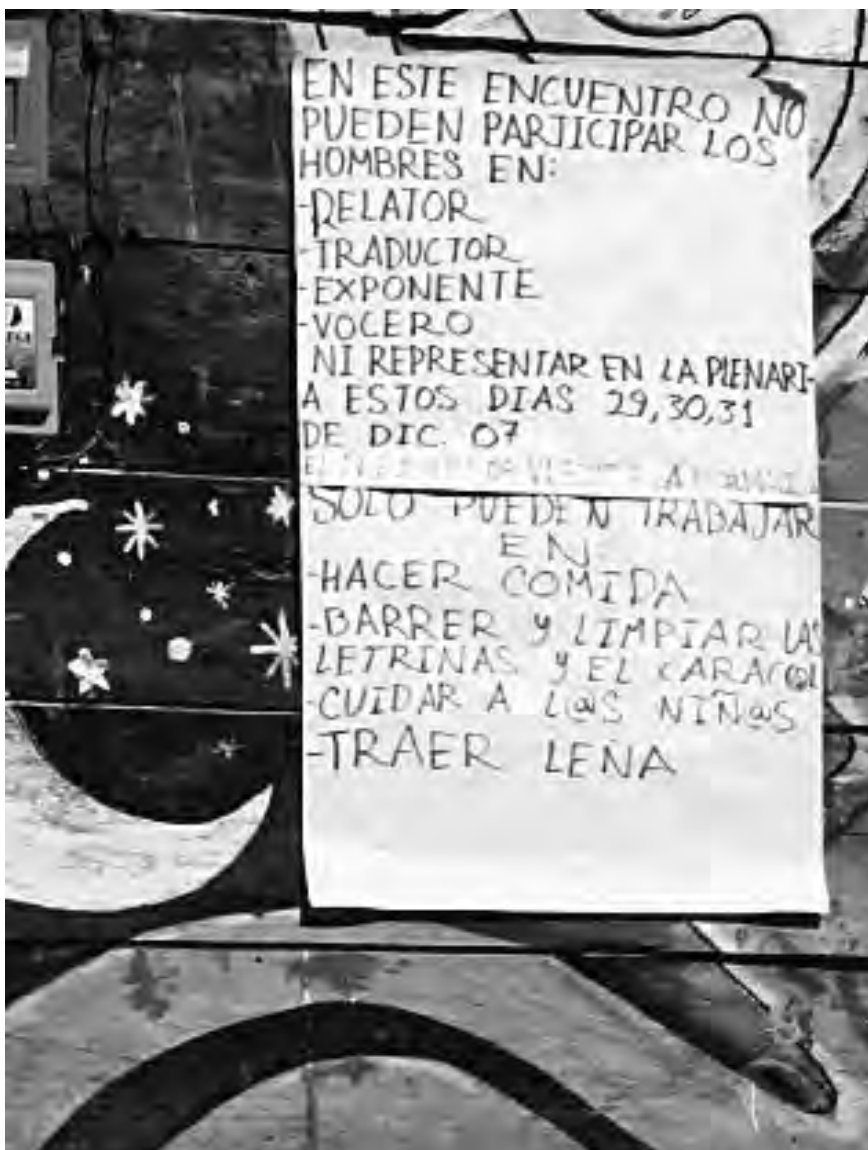 EN ESTE ENCUENTRO NO
PUEDEN PARTICIPAR LOS
HOMBRES EN:
-RELATOR
-TRADUCTOR
-EXPONENTE
-VOCERO
NI REPRESENTAR EN LA PLENARI-
A ESTOS DIAS 29,30,31
DE DIC. 07
SOLO PUEDEN TRABAJAR
EN
-HACER COMIDA
-BARRER Y LIMPIAR LAS
LETRINAS Y EL CARAC@L
-CUIDAR A L@S NIÑ@S
-TRAER LEÑA